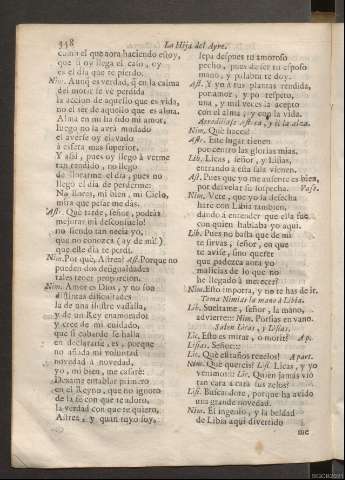 358 La Hija del Ayre.
como el que aora haciendo estoy,
que si oy llega el caso, oy
es el dia que te pierdo.
Nin. Aunq̃ es verdad, q̃ en la calma
del morir se vè perdida
la accion de aquello que es vida,
no el ser de aquello que es alma.
Alma en mi ha sido mi amor,
luego no la avrà mudado
el averse oy elevado
à esfera mas superior.
Y assi, pues oy llego à verme
tan rendido, no llego
de llorarme el dia; pues no
llego el dia de perderme:
No llores, mi bien, mi Cielo,
mira que pesar me dàs.
Ast. Què tarde, señor, podràs
mejorar mi desconsuelo!
no siendo tan necia yo,
que no conozca (ay de mi!)
que esse dia te perdì.
Nin. Por què, Astrea? Ast. Porque no
pueden dos desigualdades
tales tener proporcion.
Nin. Amor es Dios, y no son
distintas dificultades
la de una ilustre vassalla,
y de un Rey enamorado:
y cree de mi cuidado,
que si cobarde se halla
en declararse, es, porque
no añada mi voluntad
novedad à novedad,
yo, mi bien, me casarè:
Dexame entablar primero
en el Reyno, que no ignoro
de la fè con que te adoro,
la verdad con que te quiero,
Astrea, y quan tuyo soy,
sepa despues tu amoroso
pecho, pues de ser tu esposo
mano, y palabra te doy.
Ast. Y yo à tus plantas rendida,
por amor, y por respeto,
una, y mil veces la acepto
con el alma, y con la vida.
Arrodillase Astrea, y èl la alza.
Nin. Què haces?
Ast. Este lugar tienen
por centro las glorias mias.
Lib. Licas, señor, y Lisias,
entrando à esta sala vienen.
Ast. Pues que yo me ausente es bien,
por desvelar su sospecha. Vase.
Nin. Vete, que yo la desecha
harè con Libia tambien,
dando à entender que ella fue
con quien hablaba yo aqui.
Lib. Pues no basta que de mi
te sirvas, señor, en que
te avise, sino querer
que padezca aora yo
malicias de lo que no
he llegado à merecer?
Nin. Esto importa, y no te has de ir.
Toma Ninias la mano à Libia.
Lib. Sueltame, señor, la mano,
advierte:: Nin. Porfias en vano.
Salen Licas, y Lisias.
Lic. Esto es mirar, ò morir? Ap.
Lisias. Señor::
Lic. Què estraños rezelos! Apart.
Nin. Què quereis? Lisi. Licas, y yo
venimos:: Lic. Quien jamàs viò
tan cara à cara sus zelos?
Lisi. Buscando te, porque ha avido
una grande novedad.
Nin. El ingenio, y la beldad
de Libia aqui divertido
me